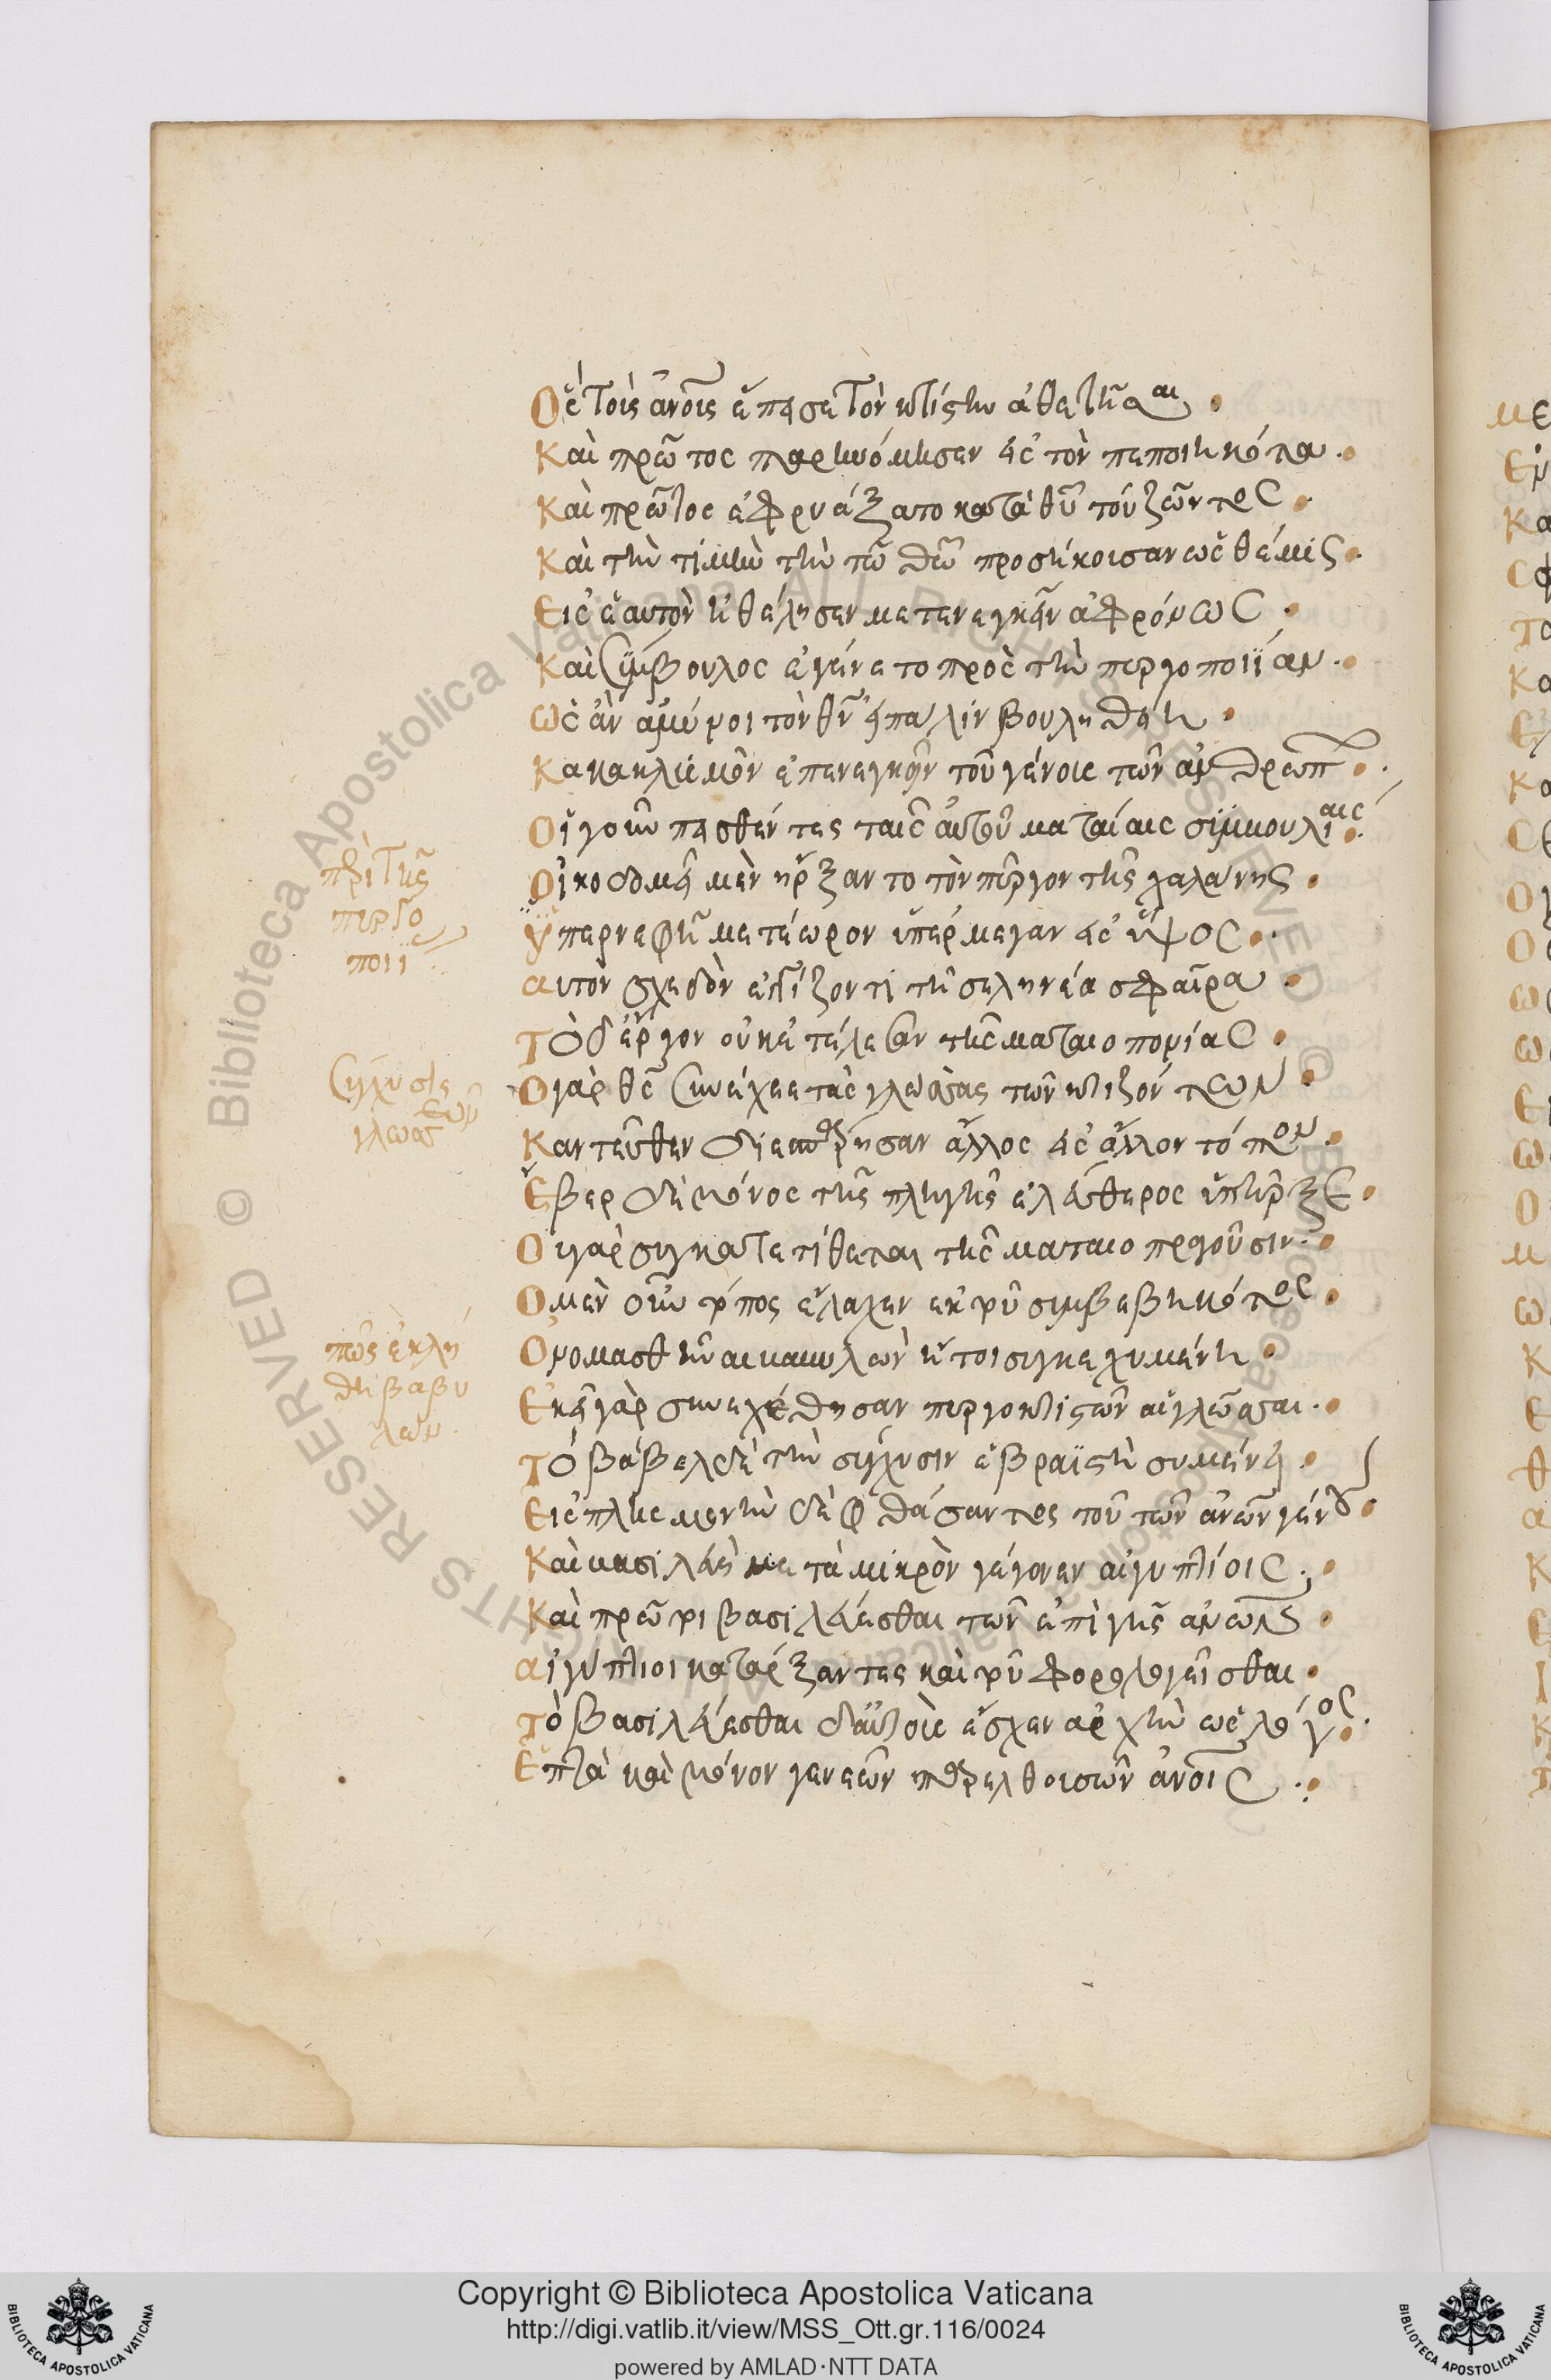 Ὃς τοῖς ἀνοις ἔπεισε τὸν κτίστην ἀθετῆσαι
Καὶ πρῶτος παρηνόμησεν εἰς τὸν πεποιηκότα
Καὶ πρῶτος ἐφρυάξατο κατὰ θῦ τοῦ ζῶντος
Καὶ τὴν τιμὴν τὴν τῶ θῶ προσήκουσαν ὡς θέμις
Εἰς ἑαυτὸν ἠθέλησεν μετενεγκεῖν ἀφρόνως
Καὶ σύμβουλος ἐγένετο πρὸς τὴν πυργοποιΐαν
Ὡς ἂν ἀμύνοι τὸν θν εἰ πάλιν βουληθείη
Κατακλυσμὸν ἐπενεγκεῖν τοῦ γένους τῶν ἀνθρώπ
Οἱ γοῦν πεισθέντες ταῖς αὐτοῦ ματαίαις συμβουλίαις
Οἰκοδομεῖν μὲν ἤρξαντο τὸν πύργον τῆς χαλάνης
Ὑπερνεφῆ μετέωρον ὑπέρμεγαν εἰς ὕψος
αὐτὸν σχεδὸν ἐγγίζοντι τῆ σεληνέα σφαῖρα
Τὸ δ' ἔργον οὐκ ἐτέλεσαν τῆς ματαιοπονίας
Ὁ γὰρ θς συνέχεε τὰς γλώσσας τῶν κτιζόντων
Κἀντεῦθεν διεσπάρησαν ἄλλος εἰς ἄλλον τόπον
Ἕβερ δὲ μόνος τῆς πληγῆς ἐλεύθερος ὑπῆρξε
Οὐ γὰρ συγκατετίθεται τῆς ματαιοπραγοῦσιν
Ὁ μὲν οὖν τόπος ἔλαχεν ἐκ τοῦ συμβεβηκότος
Ὀνομασθῆναι βαβυλὼν ἤτοι συγκεχυμένη
Ἐκεῖ γὰρ συνεχέθησαν πυργοκτιστῶν αἱ γλῶσσαι
Τὸ βάβελ δὲ τὴν σύγχυσιν ἑβραϊστὴ συμαίνει
Εἰς πλησμονὴν δὲ φθάσαντος τοῦ τῶν ἀνων γένους
Καὶ βασιλεὺς μετὰ μικρὸν γέγονεν αἰγυπτίοις
Καὶ πρῶτοι βασιλεύεσθαι τῶν ἐπὶ γῆς ἀνων
αἰγύπτιοι κατάρξαντες καὶ τοῦ φορολογεῖσθαι
Τὸ βασιλεύεσθαι δ' αὐτοῖς ἔσχεν ἀρχὴν ὡς λόγος
Ἑπτὰ καὶ μόνον γενεῶν παρελθουσῶν ἀνοις
περὶ τῆς
πυργο
ποιΐ
σύγχυσις
γλωσσῶν
πῶς ἐκλή
θη βαβυ
λών
Copyright © Biblioteca Apostolica Vaticana
http://digi.vatlib.it/view/MSS_Ott.gr.116/0024
powered by AMLAD·NTT DATA